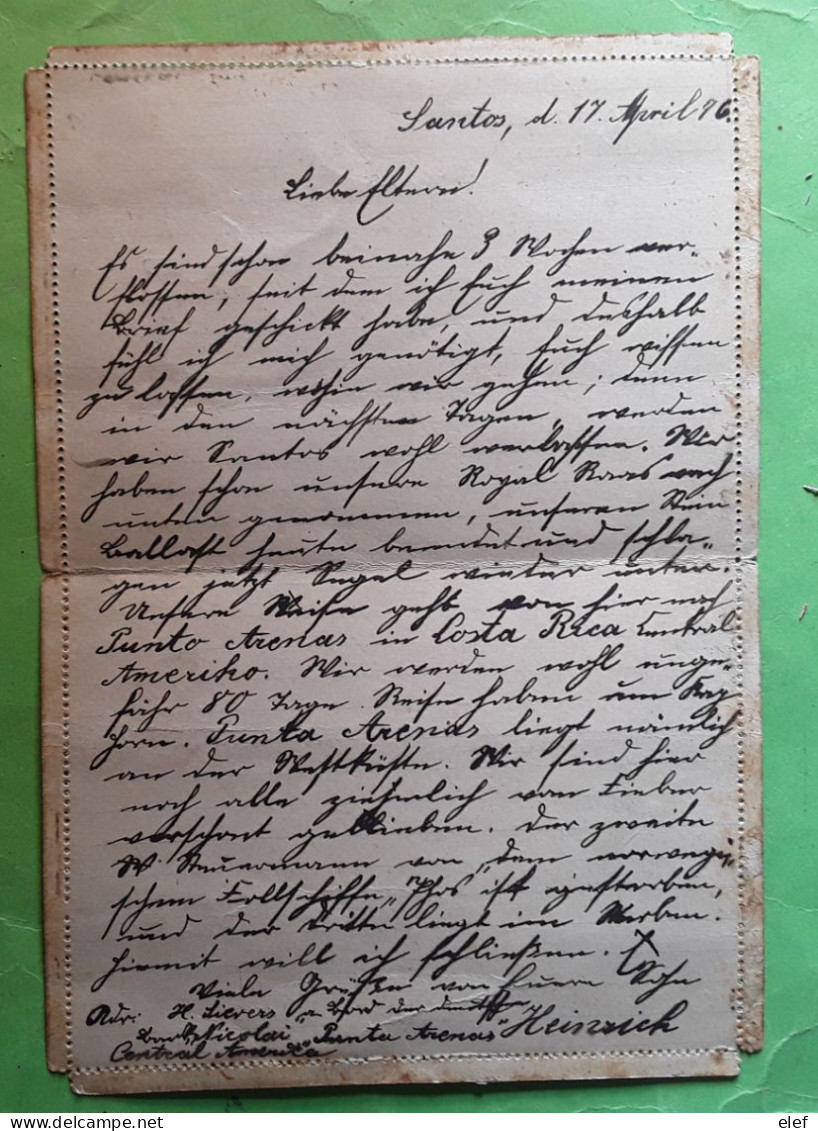 Santos, d. 17. April 96.
Liebe Eltern!
Es sind schon beinahe 3 Wochen ver-
flossen, seit dem ich Euch meinen
Brief geschickt habe, und deshalb
fühl ich mich genötigt, Euch wissen
zu lassen, wohin wir gehen; denn
in den nächsten Tagen werden
wir Santos wohl verlassen. Wir
haben schon unsere Royal Raas nach
unten genommen, unseren Stein
Ballast heute beendet und schla-
gen jetzt Segel wieder unter.
Unsere Reise geht von hier nach
Punto Arenas in Costa Rica Central
Ameriko. Wir werden wohl unge-
fähr 80 Tage Reise haben um Kap
Horn. Punta Arenas liegt nämlich
an der Westküste. Wir sind hier
noch alle ziehmlich vom Fieber
verschont geblieben. Der zweite
Steuermann von dem norwegi-
schen Vollschiffe ist gestorben,
und der Dritte liegt im Sterben.
Hiermit will ich schließen.
Viele Grüße von Euern Sohn
Heinrich
Adr: H. Sievers a Bord der deutschen
Bark "Nicolai" "Punta Arenas"
Central Amerika
elef